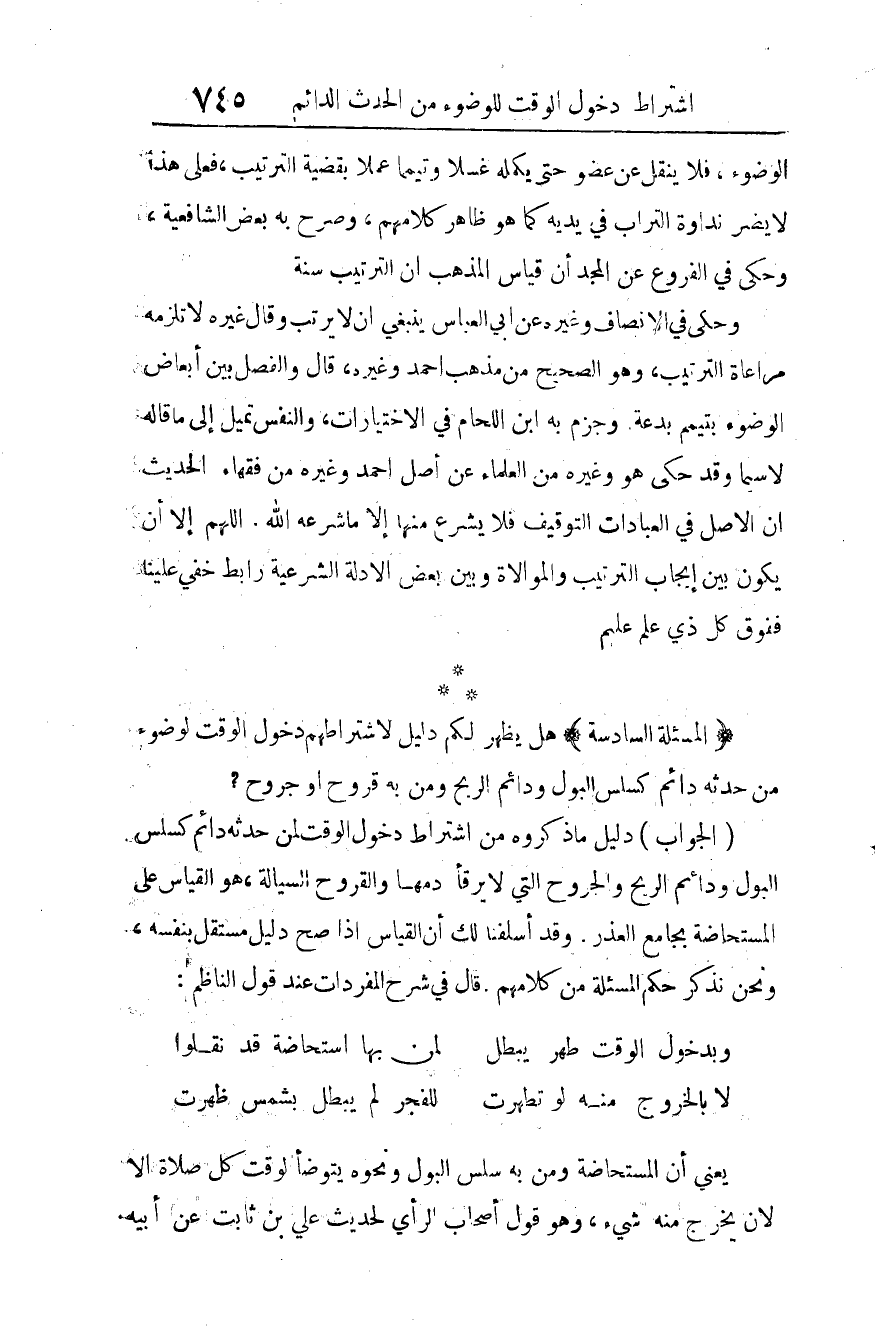 اشتراط دخول الوقت للوضوء من الحدث الدائم ٧٤٥
الوضوء ، فلا ينقل عن عضو حتى يكمله غسلا وتيمما عملا بقضية الترتيب ، فعلى هذا
لايضر نداوة التراب في يديه كما هو ظاهر كلامهم ، وصرح به بعض الشافعية ،
وحكى في الفروع عن المجد أن قياس المذهب ان الترتيب سنة
وحكى في الانصاف وغيره عن ابي العباس ينبغي ان لا يرتب وقال غيره لا تلزمه
مراعاة الترتيب، وهو الصحيح من مذهب احمد وغيره، قال والفصل بين أبعاض
الوضوء بتيمم بدعة. وجزم به ابن اللحام في الاختيارات، والنفس تميل إلى ماقاله
لاسيما وقد حكى هو وغيره من العلماء عن أصل احمد وغيره من فقهاء الحديث
ان الاصل في العبادات التوقيف فلا يشرع منها إلا ماشرعه الله . اللهم إلا أن
يكون بين إيجاب الترتيب والموالاة وبين بعض الادلة الشرعية رابط خفي علينا
ففوق كل ذي علم عليم
*
* *
﴿ المسئلة السادسة ﴾ هل يظهر لكم دليل لاشتراطهم دخول الوقت لوضوء
من حدثه دائم كسلس البول ودائم الريح ومن به قروح او جروح ?
( الجواب ) دليل ماذكروه من اشتراط دخول الوقت لمن حدثه دائم كسلس
البول ودائم الريح والجروح التي لا يرقأ دمها والقروح السيالة ، هو القياس على
المستحاضة بجامع العذر . وقد أسلفنا لك أن القياس اذا صح دليل مستقل بنفسه ،
ونحن نذكر حكم المسئلة من كلامهم . قال في شرح المفردات عند قول الناظم :
وبدخول الوقت طهر يبطل لمن بها استحاضة قد نقلوا
لا بالخروج منه لو تطهرت للفجر لم يبطل بشمس ظهرت
يعني أن المستحاضة ومن به سلس البول ونحوه يتوضأ لوقت كل صلاة الا
لان يخرج منه شيء ، وهو قول أصحاب الرأي لحديث علي بن ثابت عن أبيه